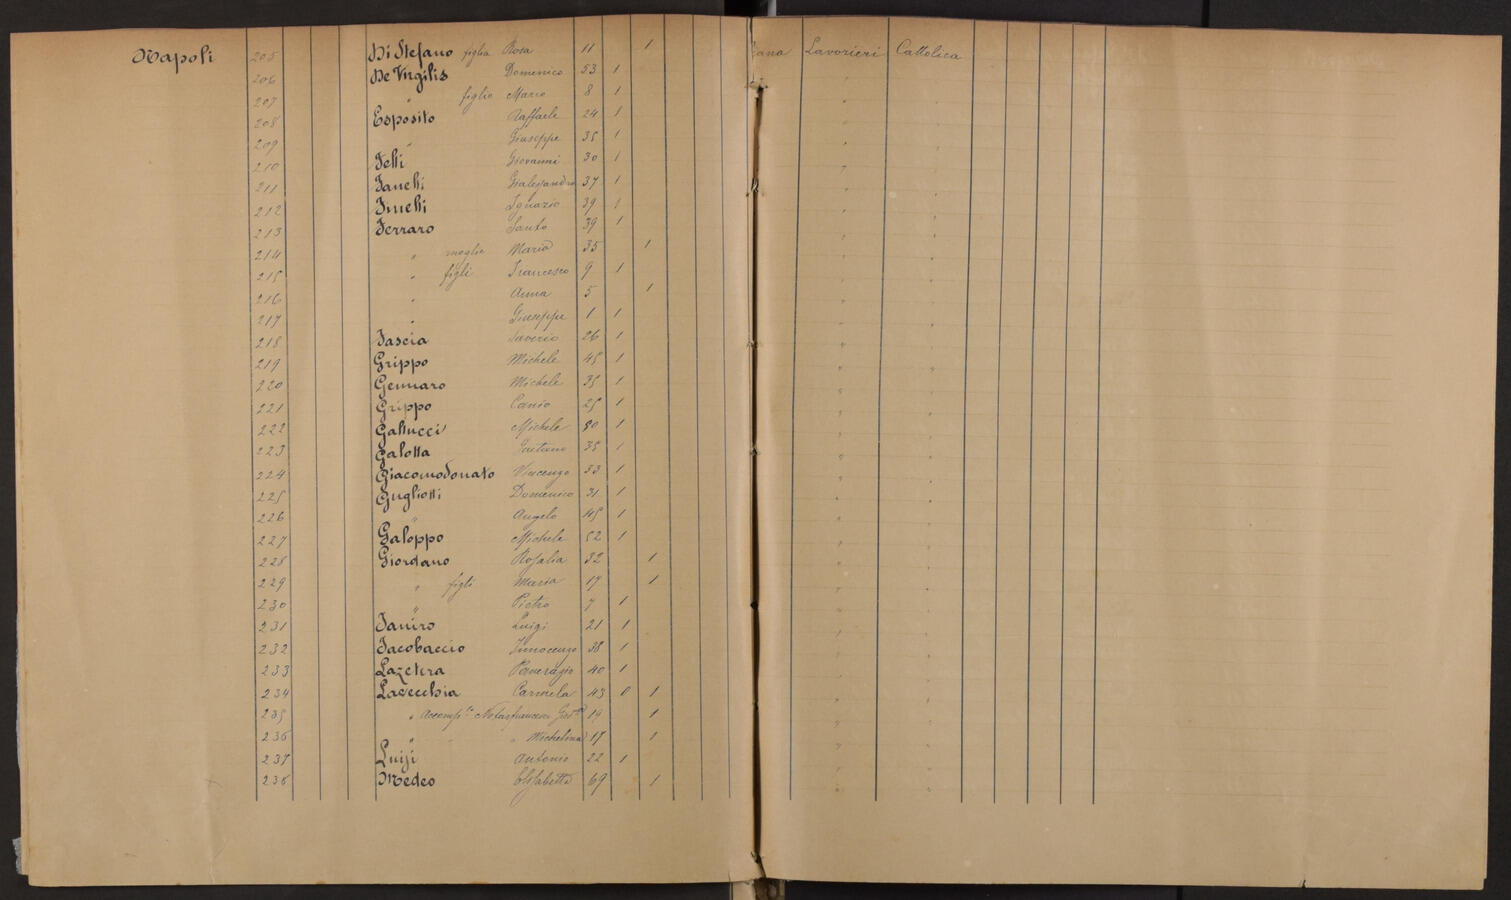 Napoli 205 Di Stefano figlia Rosa 11 1 Lavorieri Cattolica
206 De Virgilis Domenico 53 1
207 " figlio Marco 8 1
208 Esposito Raffaele 24 1
209 " Giuseppe 35 1
210 Felli Giovanni 30 1
211 37 1
212 Ignazio 39 1
213 Ferraro Santo 39 1
214 " moglie Maria 35 1
215 " figli Francesco 9 1
216 " Anna 5 1
217 " Giuseppe 1 1
218 Fascia Saverio 26 1
219 Grippo Michele 45 1
220 Gennaro Michele 35 1
221 Grippo Canio 25 1
222 Gallucci Michele 1
223 Galotta Gaetano 35 1
224 Giacomodonato Vincenzo 33 1
225 Gugliotti Domenico 31 1
226 " Angelo 45 1
227 Galoppo Michele 52 1
228 Giordano Rosalia 32 1
229 " figli Maria 17 1
230 " Pietro 7 1
231 Janiro Luigi 21 1
232 Jacobaccio Innocenzo 38 1
233 Lazetera 40 1
234 Lavecchia Carmela 43 0 1
235 " 19 1
236 " " Michelina 17 1
237 Luiji Antonio 22 1
238 Medeo Elisabetta 69 1